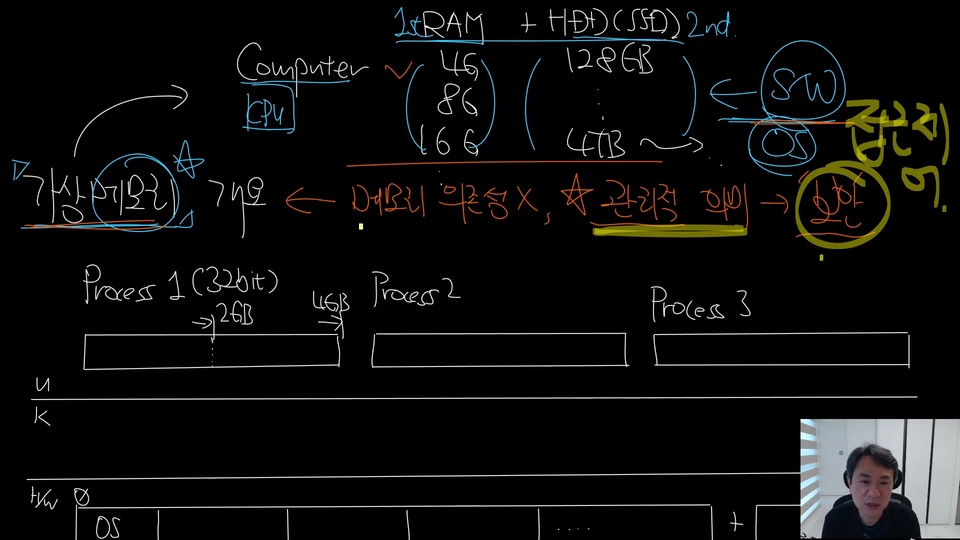 1st RAM + HDD(SSD) 2nd.
Computer 4G 128GB SW
CPU 8G
16G 4TB OS 접근제어
가상메모리 개요 메모리 의존성 X, 관리적 의미 보안
Process 1 (32bit) Process 2 Process 3
2GB 4GB
U
K
H/W 0
OS .... +